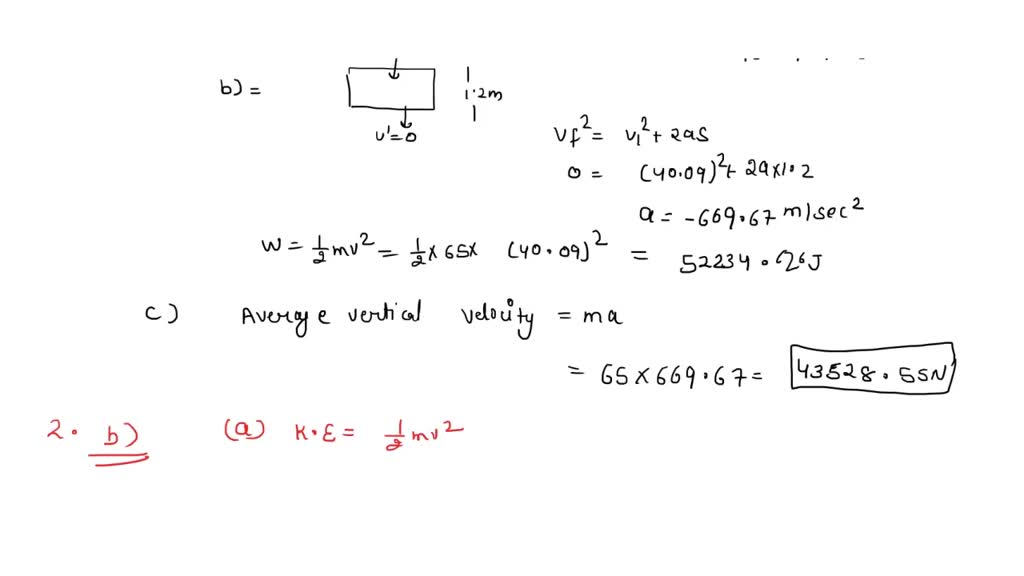 b) =
1.2m
v'=0
Vf² = v₁² + 2as
0 = (40.09)² + 2a×1.2
a = -669.67 m/sec²
W = ½mv² = ½ × 65 × (40.09)² = 52234.26J
c) Average vertical velocity = ma
= 65 × 669.67 = 43528.55N
2. b) (a) K.E = ½mv²